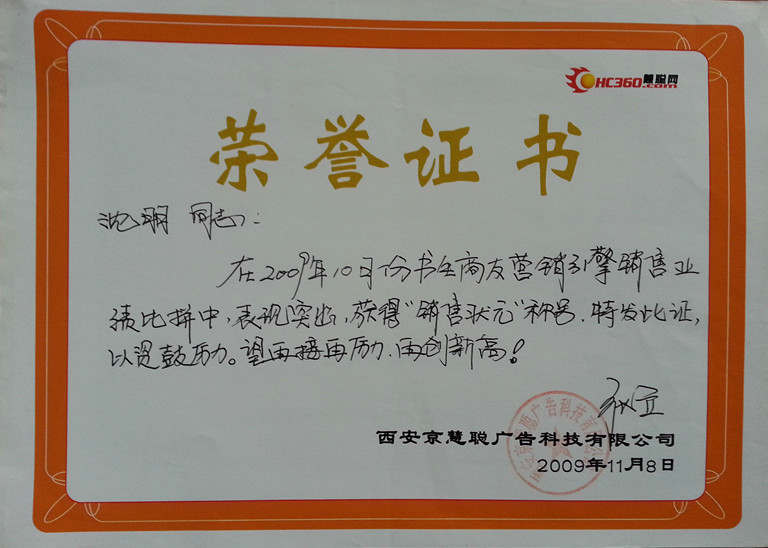 HC360慧聪网
.com
荣誉证书
沈明 同志:
在2009年10月份书生商友营销引擎销售业
绩比拼中,表现突出,获得“销售状元”称号.特发此证,
以资鼓励。望再接再励.再创新高!
西安京慧聪广告科技有限公司
2009年11月8日